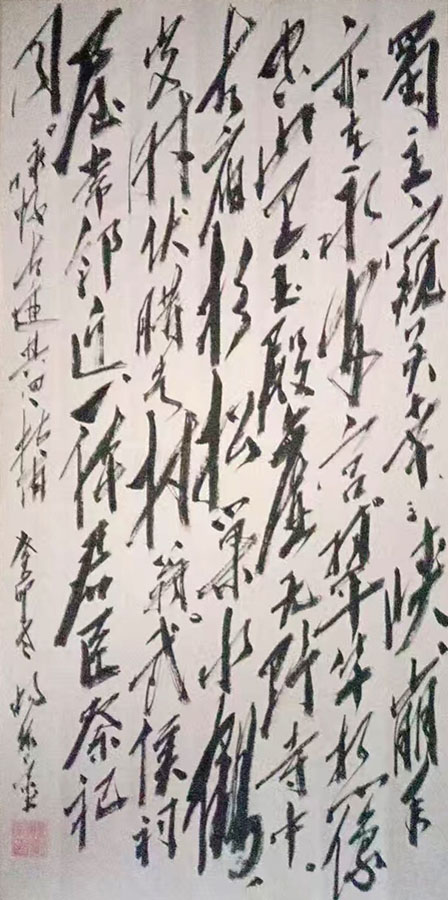 蜀主窥吴幸三峡崩年
亦在永安宫翠华想像
空山里玉殿虚无野寺中
古庙杉松巢水鹤
岁时伏腊走村翁武侯祠
屋常邻近一体君臣祭祀
同 咏怀古迹其四 杜甫